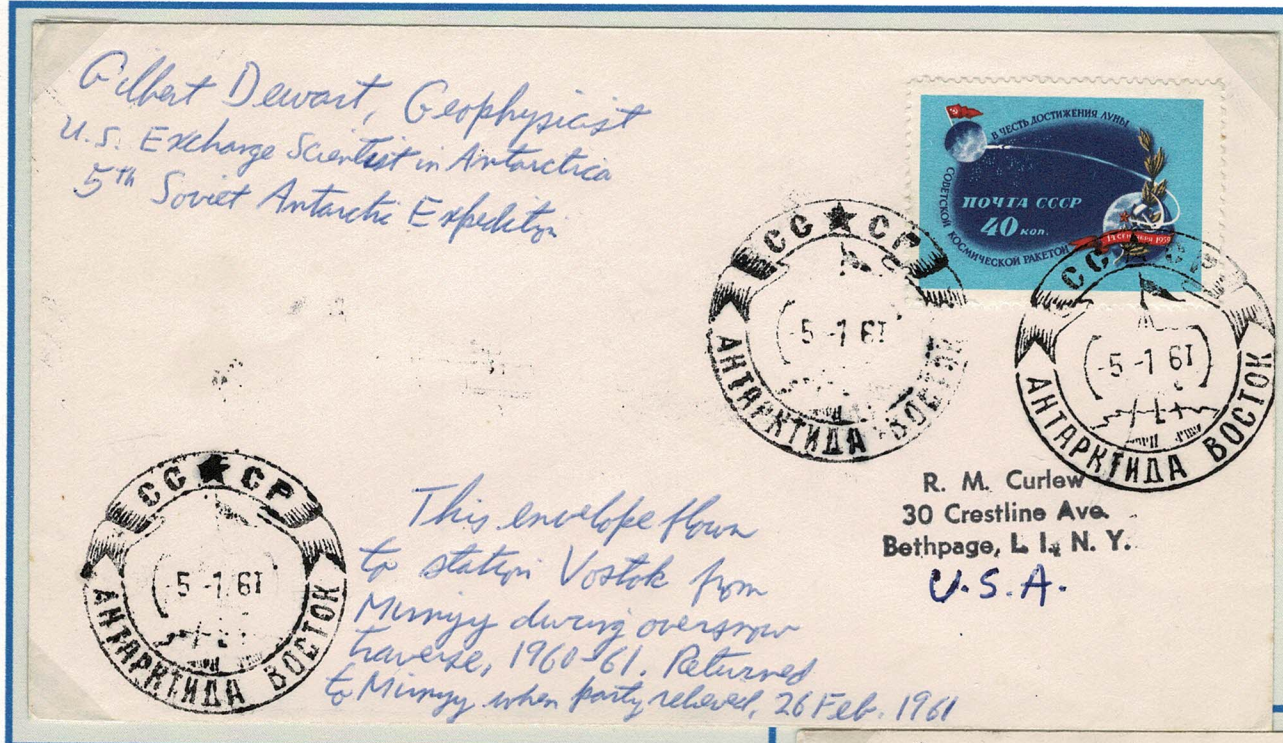 Gilbert Dewart, Geophysicist
U.S. Exchange Scientist in Antarctica
5th Soviet Antarctic Expedition
В ЧЕСТЬ ДОСТИЖЕНИЯ ЛУНЫ
СОВЕТСКОЙ КОСМИЧЕСКОЙ РАКЕТОЙ
ПОЧТА СССР
40 коп.
14 сентября 1959
СС★СР
-5-1 61
АНТАРКТИДА ВОСТОК
СС★СР
-5-1 61
АНТАРКТИДА ВОСТОК
R. M. Curlew
30 Crestline Ave.
Bethpage, L. I., N. Y.
U.S.A.
СС★СР
-5-1 61
АНТАРКТИДА ВОСТОК
This envelope flown
to station Vostok from
Mirnyy during oversnow
traverse, 1960-61. Returned
to Mirnyy when party relieved, 26 Feb. 1961